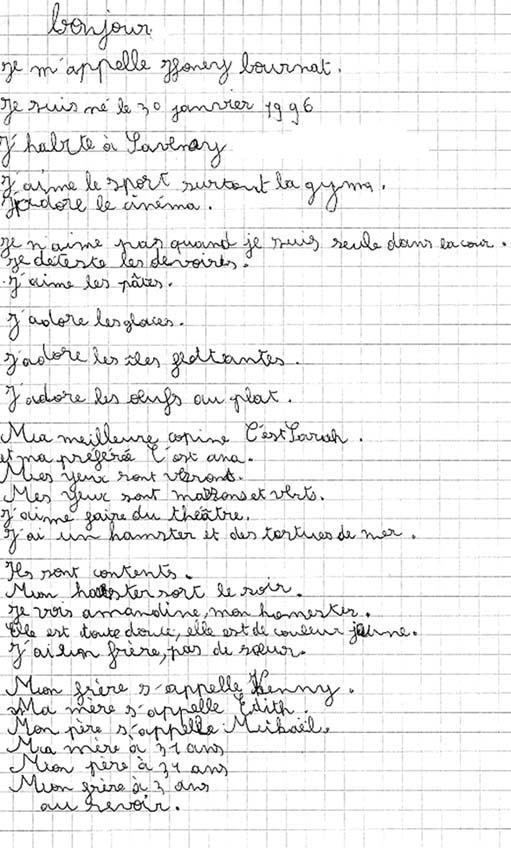 bonjour.
Je m'appelle bournat.
Je suis né le 30 janvier 1996
J'habite à Savenay
J'aime le sport surtout la gym.
J'adore le cinéma.
Je n'aime pas quand je suis seule dans la cour.
Je déteste les devoires.
J'aime les pâtes.
J'adore les glaces.
J'adore les îles flottantes.
J'adore les œufs au plat.
Ma meilleure copine C'est Sarah.
et ma préférée C'est ana.
Mes yeux sont
Mes yeux sont marrons et verts.
J'aime faire du théâtre.
J'ai un hamster et des tortues de mer.
Ils sont contents.
Mon hamster sort le soir.
Je vois amandine, mon hamester.
Elle est toute douce, elle est de couleur jaune.
J'ai un frère, pas de sœur.
Mon frère s'appelle Kenny.
Ma mère s'appelle Edith.
Mon père s'appelle Mikaël.
Ma mère à 31 ans
Mon père à 31 ans
Mon frère à 3 ans
au revoir.